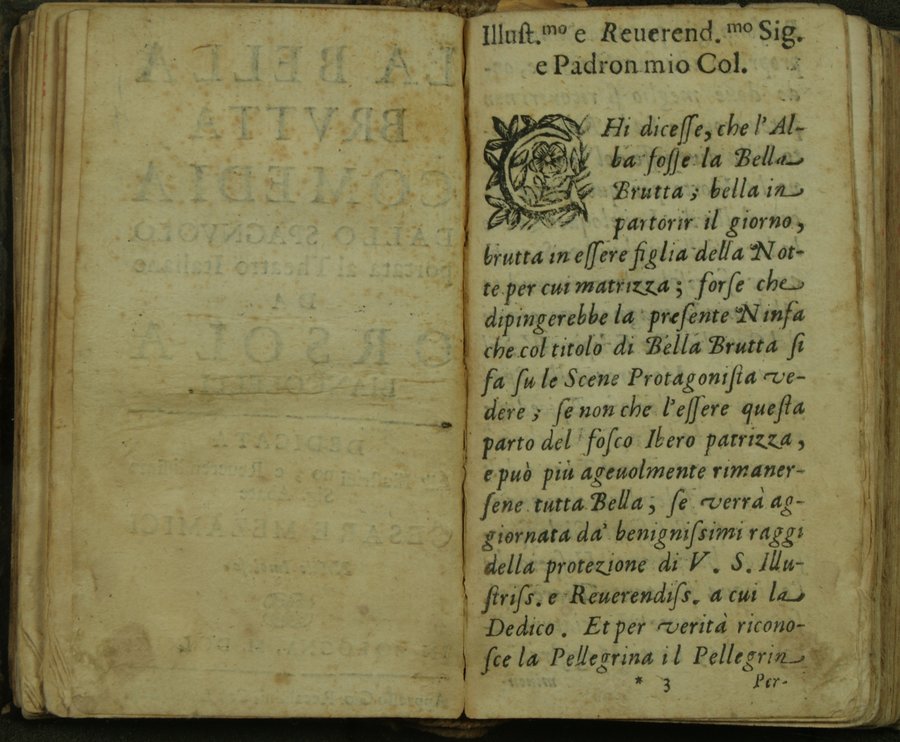 Illuſt.mo e Reuerend.mo Sig.
e Padron mio Col.
CHi diceſſe, che l'Al-
ba foſſe la Bella
Brutta; bella in
partorir il giorno,
brutta in eſſere figlia della Not-
te per cui matrizza; forſe che
dipingerebbe la preſente Ninfa
che col titolo di Bella Brutta ſi
fa ſu le Scene Protagoniſta ve-
dere; ſe non che l'eſſere queſta
parto del foſco Ibero patrizza,
e può più ageuolmente rimaner-
ſene tutta Bella, ſe verrà ag-
giornata da' benigniſsimi raggi
della protezione di V. S. Illu-
ſtriſs. e Reuerendiſs. a cui la
Dedico. Et per verità ricono-
ſce la Pellegrina il Pellegrin
* 3 Per-